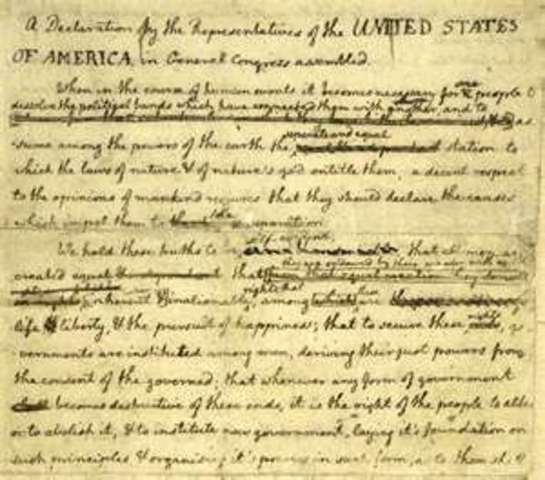 A Declaration by the Representatives of the UNITED STATES
OF AMERICA, in General Congress assembled.
When in the course of human events it becomes necessary for one people to
dissolve the political bands which have connected them with another, and to
as
separate and equal
sume among the powers of the earth the station to
which the laws of nature & of nature's god entitle them, a decent respect
to the opinions of mankind requires that they should declare the causes
which impel them to the separation.
self-evident,
We hold these truths to be that all men are
they are endowed by their creator with
created equal that
rights that
inherent & inalienable, among which are
life & liberty, & the pursuit of happiness; that to secure these
vernments are instituted among men, deriving their just powers from
the consent of the governed; that whenever any form of government
becomes destructive of these ends, it is the right of the people to alter
or to abolish it, & to institute new government, laying it's foundation on
such principles & organising it's powers in such form, as to them